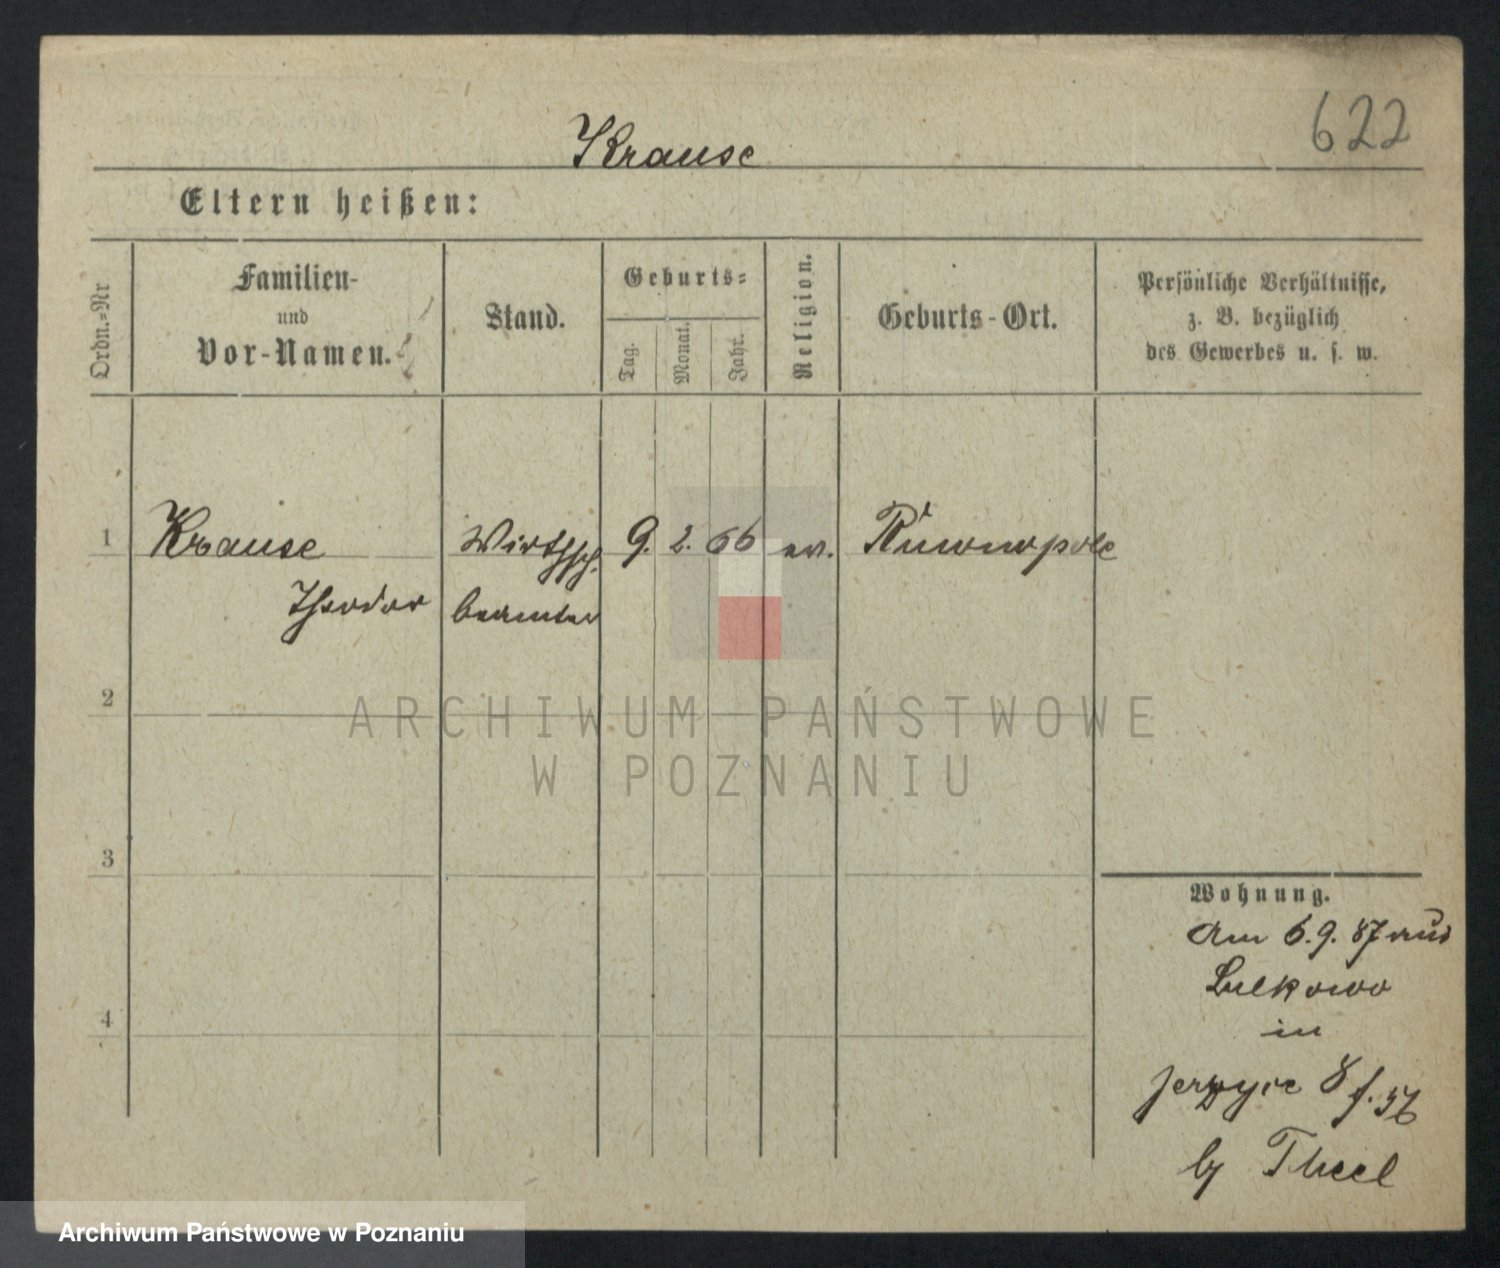 622
Krause
Eltern heißen:
Ordn.=Nr
Familien-
und
Vor-Namen.
Stand.
Geburts=
Tag.
Monat.
Jahr.
Religion.
Geburts-Ort.
Persönliche Verhältnisse,
z. B. bezüglich
des Gewerbes u. s. w.
1
Krause
Wirthsch.
9. 2. 66
ev.
Theodor
beamter
2
ARCHIWUM PAŃSTWOWE
W POZNANIU
3
Wohnung.
Am 6.9. 87 aus
Lulkowo
4
in
Jerzyce 8
by Theel
Archiwum Państwowe w Poznaniu